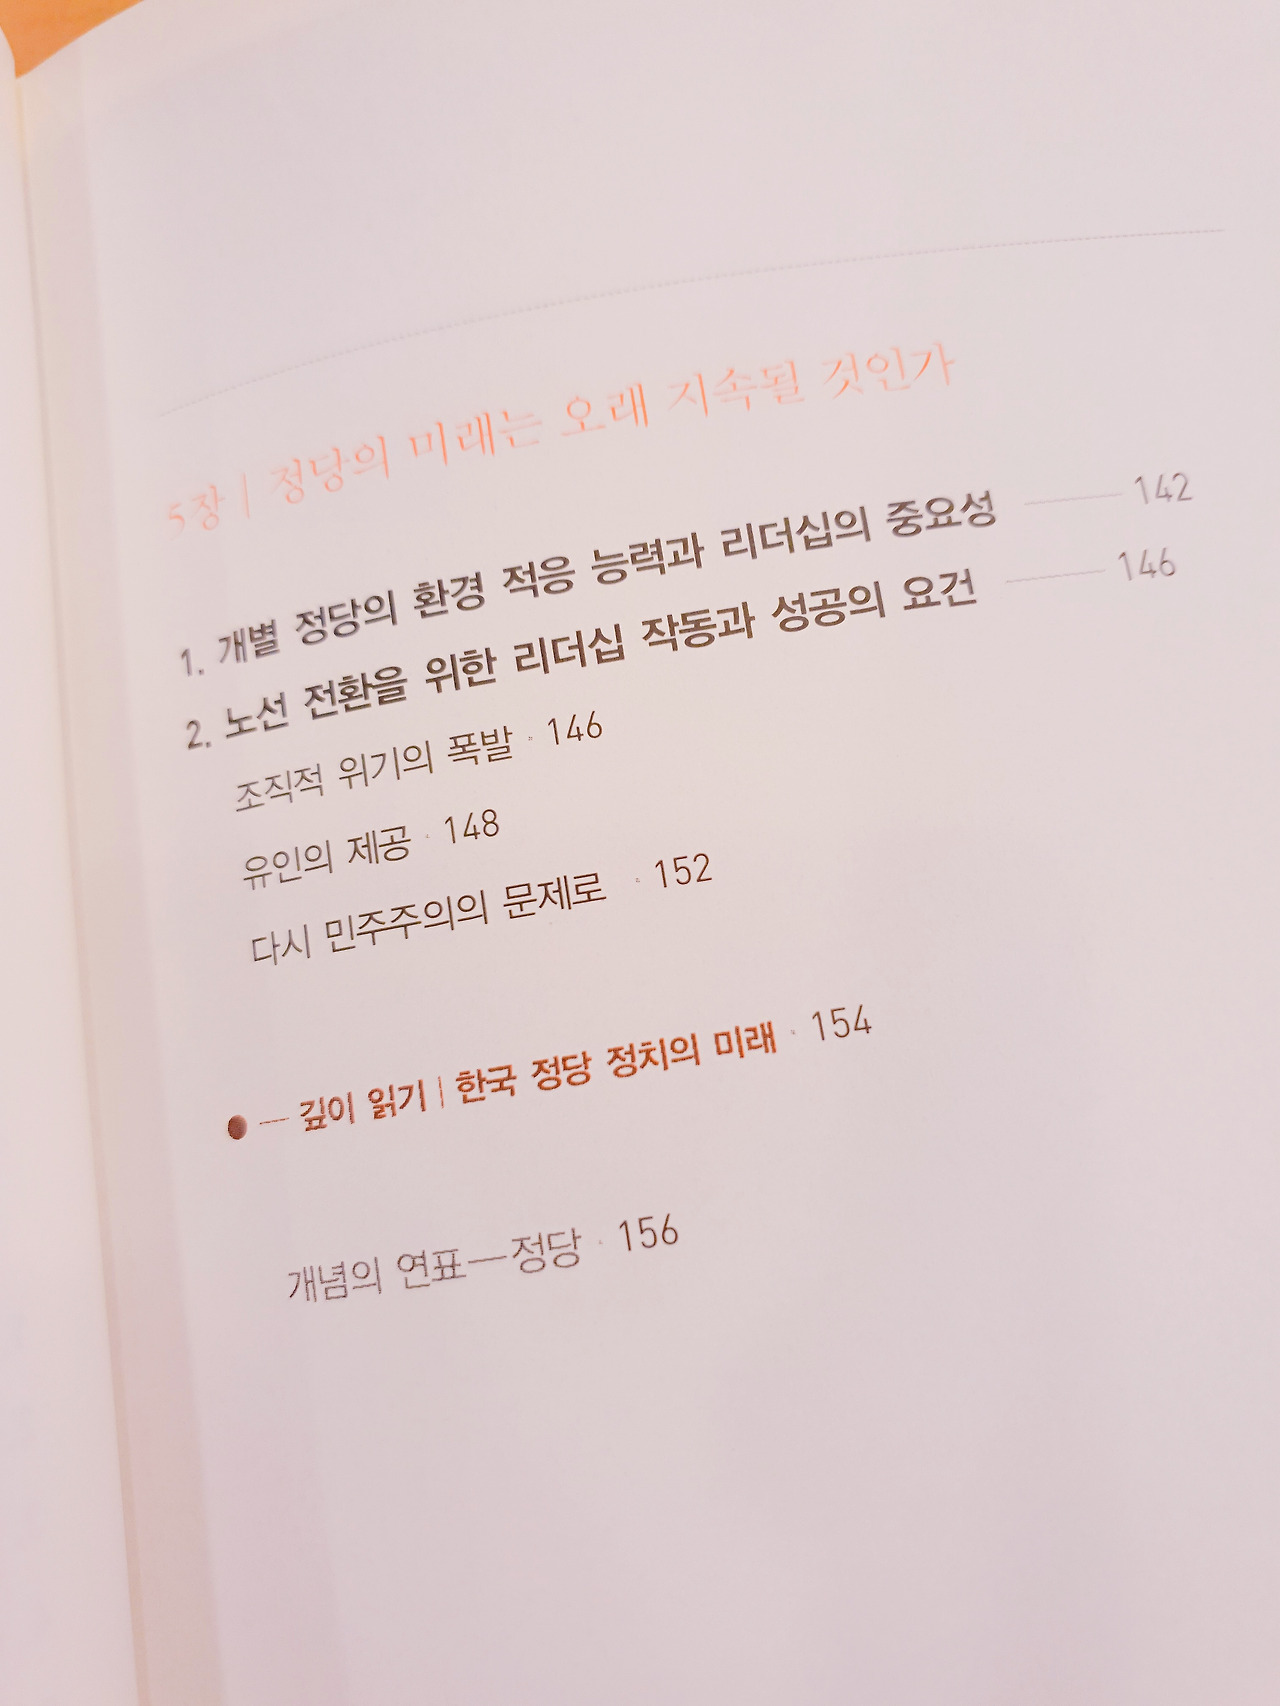 5장 | 정당의 미래는 오래 지속될 것인가
1. 개별 정당의 환경 적응 능력과 리더십의 중요성 —— 142
2. 노선 전환을 위한 리더십 작동과 성공의 요건 —— 146
조직적 위기의 폭발 · 146
유인의 제공 · 148
다시 민주주의의 문제로 · 152
● — 깊이 읽기 | 한국 정당 정치의 미래 · 154
개념의 연표—정당 · 156